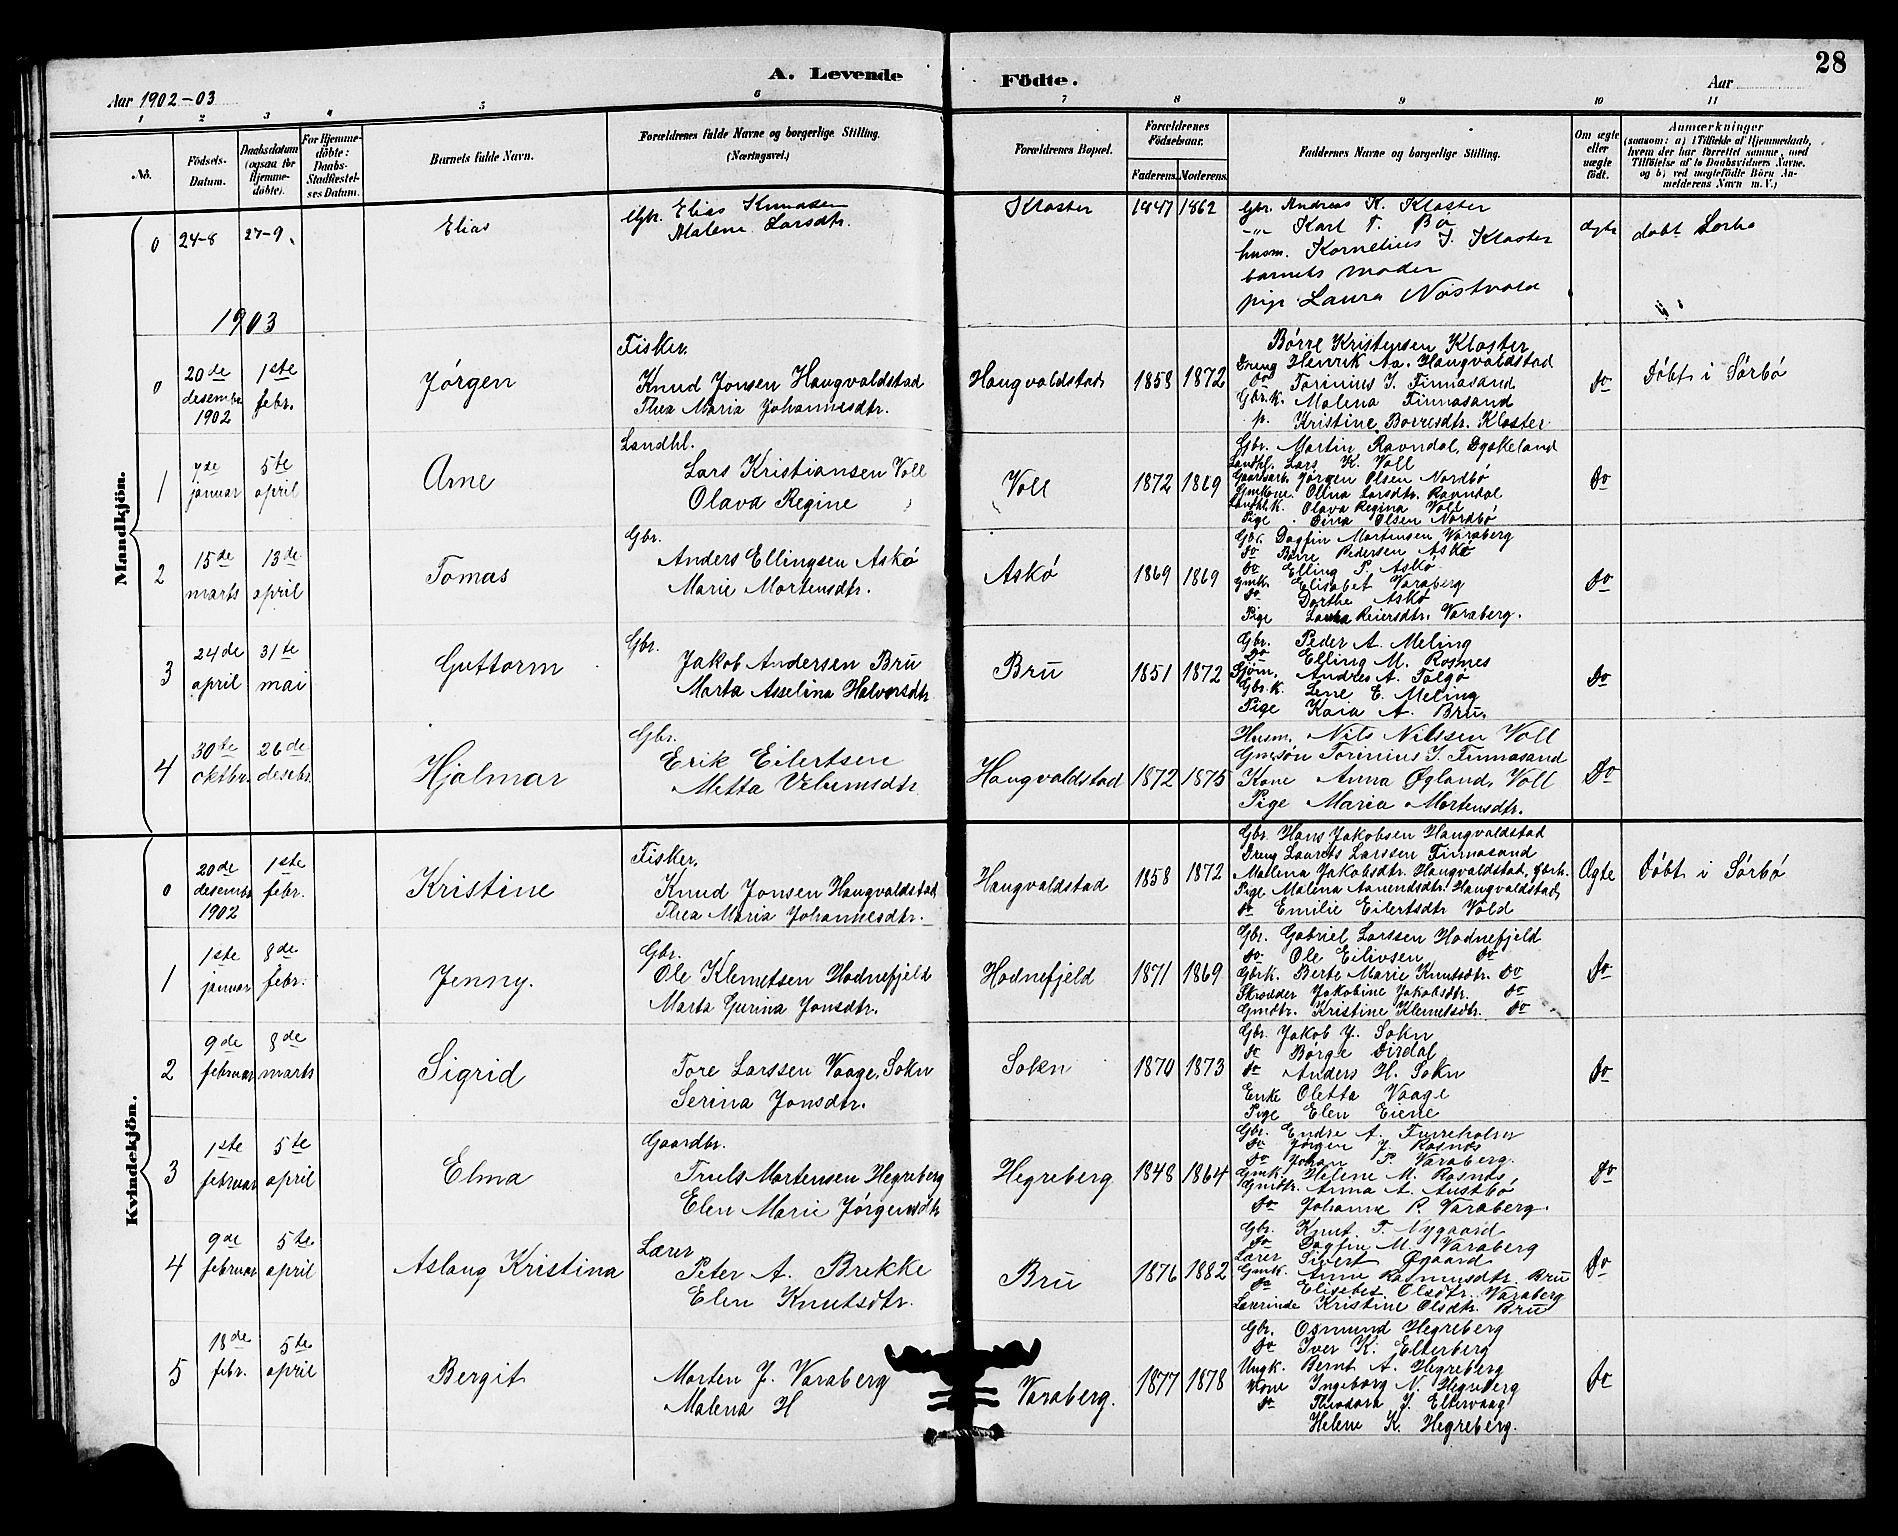 28
A. Levende Födte.
Aar 1902-03
Aar
1 2 3 4 5 6 7 8 9 10 11
No.
Födsels-Datum.
Daabsdatum (ogsaa for Hjemme-döbte).
For Hjemme-döbte: Daabs-Stadfæstelses Datum.
Barnets fulde Navn.
Forældrenes fulde Navne og borgerlige Stilling. (Næringsvei.)
Forældrenes Bopæl.
Forældrenes Födselsaar.
Faderens. Moderens.
Faddernes Navne og borgerlige Stilling.
Om ægte eller uægte födt.
Anmærkninger
(saasom: a) i Tilfælde af Hjemmedaab, hvem der har forrettet samme, med Tilföielse af to Daabsvidners Navne, og b) ved uægtefödte Börn Anmelderens Navn m. V.)
Mandkjön.
0 24-8 27-9. Elias
Gbr. Elias Knudsen
Malene Larsdtr.
Kloster 1847 1862
Gbr. Andreas K. Kloster
-"- Karl T. Bø
husm. Kornelius J. Kloster
barnets moder
pige Laura Nostvold
ægte døbt Sorbø
1903
0 20de desembr 1902 1ste febr. Jørgen
Fisker.
Knud Jonsen Haugvaldstad
Thea Maria Johannesdtr.
Haugvaldstad 1858 1872
Børre Kristensen Kloster
Dreng Henrik Aa. Haugvaldstad
do Torinius J. Finnasand
Gbr.k. Malena Finnasand
p. Kristine Borresdtr. Kloster
do Døbt i Sørbø
1 7de januar 5te april Arne
Landhl.
Lars Kristiansen Voll
Olava Regine
Voll 1872 1869
Gbr. Martin Ravndal, Dyskeland
Landhl. Lars K. Voll
Gaardarb. Jørgen Olsen Nordbø
Gmkone Olina Larsdtr. Ravndal
Landhl.k. Olava Regina Voll
Pige Dina Olsen Nordbø
do
2 15de marts 13de april Tomas
Gbr.
Anders Ellingsen Askø
Marie Mortensdtr.
Askø 1869 1869
Gbr. Dagfin Mortensen Varaberg
do Børre Pedersen Askø
do Elling P. Askø
Gmk. Elisabet Varaberg
do Dorthe Askø
Pige Laura Reiersdtr. Varaberg.
do
3 24de april 31te mai Guttorm
Gbr.
Jakob Andersen Bru
Marta Asselina Halvorsdtr
Bru 1851 1872
Gbr. Peder A. Meling
Do Elling M. Rosnes
Sjøm. Andres A. Talgø
Gbr.k. Lene E. Meling
Pige Kaia A. Bru.
Do
4 30te oktbr. 26de desebr. Hjalmar
Gbr.
Erik Eilertsen
Metta Velumsdtr
Haugvaldstad 1872 1875
Husm. Nils Nilssen Voll
Gmssøn Torinius J. Finnasand
Kone Anna Øgland, Voll
Pige Maria Mortensdtr.
Do
Kvindekjön.
0 20de desembr 1902 1ste febr. Kristine
Fisker.
Knud Jonsen Haugvaldstad
Thea Maria Johannesdtr.
Haugvaldstad 1858 1872
Gbr. Hans Jakobsen Haugvaldstad
Dreng Laurits Larssen Finnasand
Malena Jakobsdtr. Haugvaldstad, Gbrk.
Pige Malena Aamundsdtr. Haugvaldstad,
do Emilie Eilertsdtr Vold
Ægte Døbt i Sørbø
1 1ste januar 8de febr. Jenny.
Gbr.
Ole Klemetsen Hodnefjeld
Marta Gurina Jonsdtr.
Hodnefjeld 1871 1869
Gbr. Gabriel Larssen Hodnefjeld
do Ole Eilivsen do
Gbrk. Berte Marie Knutsdtr. do
Skrædder Jakobine Jakobsdtr. do
Gmdtr. Kristine Klemetsdtr. do
do
2 9de februar 8de marts Sigrid
Tore Larssen Vaage, Sokn
Serina Jonsdtr.
Sokn 1870 1873
Gbr. Jakob J. Sokn
do Børge Dirdal
do Anders H. Sokn
Enke Oletta Vaage
Pige Elen Eiene
do
3 1ste februar 5te april Elma
Gaardbr.
Truls Mortensen Hegreberg
Elen Marie Jørgensdtr
Hegreberg 1848 1864
Gbr. Endre A. Furreholm
do Jørgen J. Rosnes
do Johan P. Varaberg.
Gmk. Helene M. Rosnes
Gmdtr. Anna A. Austbø
do Johanne R. Varaberg.
do
4 9de februar 5te april Aslaug Kristina
Lærer
Peter A. Brekke
Elen Knutsdtr.
Bru 1876 1882
Gbr. Knut T. Nygaard
do Dagfin M. Varaberg
Lærer Sivert Øgaard
Gmk. Anne Rasmusdtr. Bru
do Elisebet Olsdtr. Varaberg
Lærerinde Kristine Olsdtr. Bru
do
5 18de febr. 5te april Bergit
Morten J. Varaberg
Malena H
Varaberg. 1877 1878
Gbr. Osmund Hegreberg
do Iver K. Elterberg
Ungk. Bernt A. Hegreberg
Kone Ingeborg N. Hegreberg
do Theodora J. Eltervaag
Helene K. Hegreberg.
do